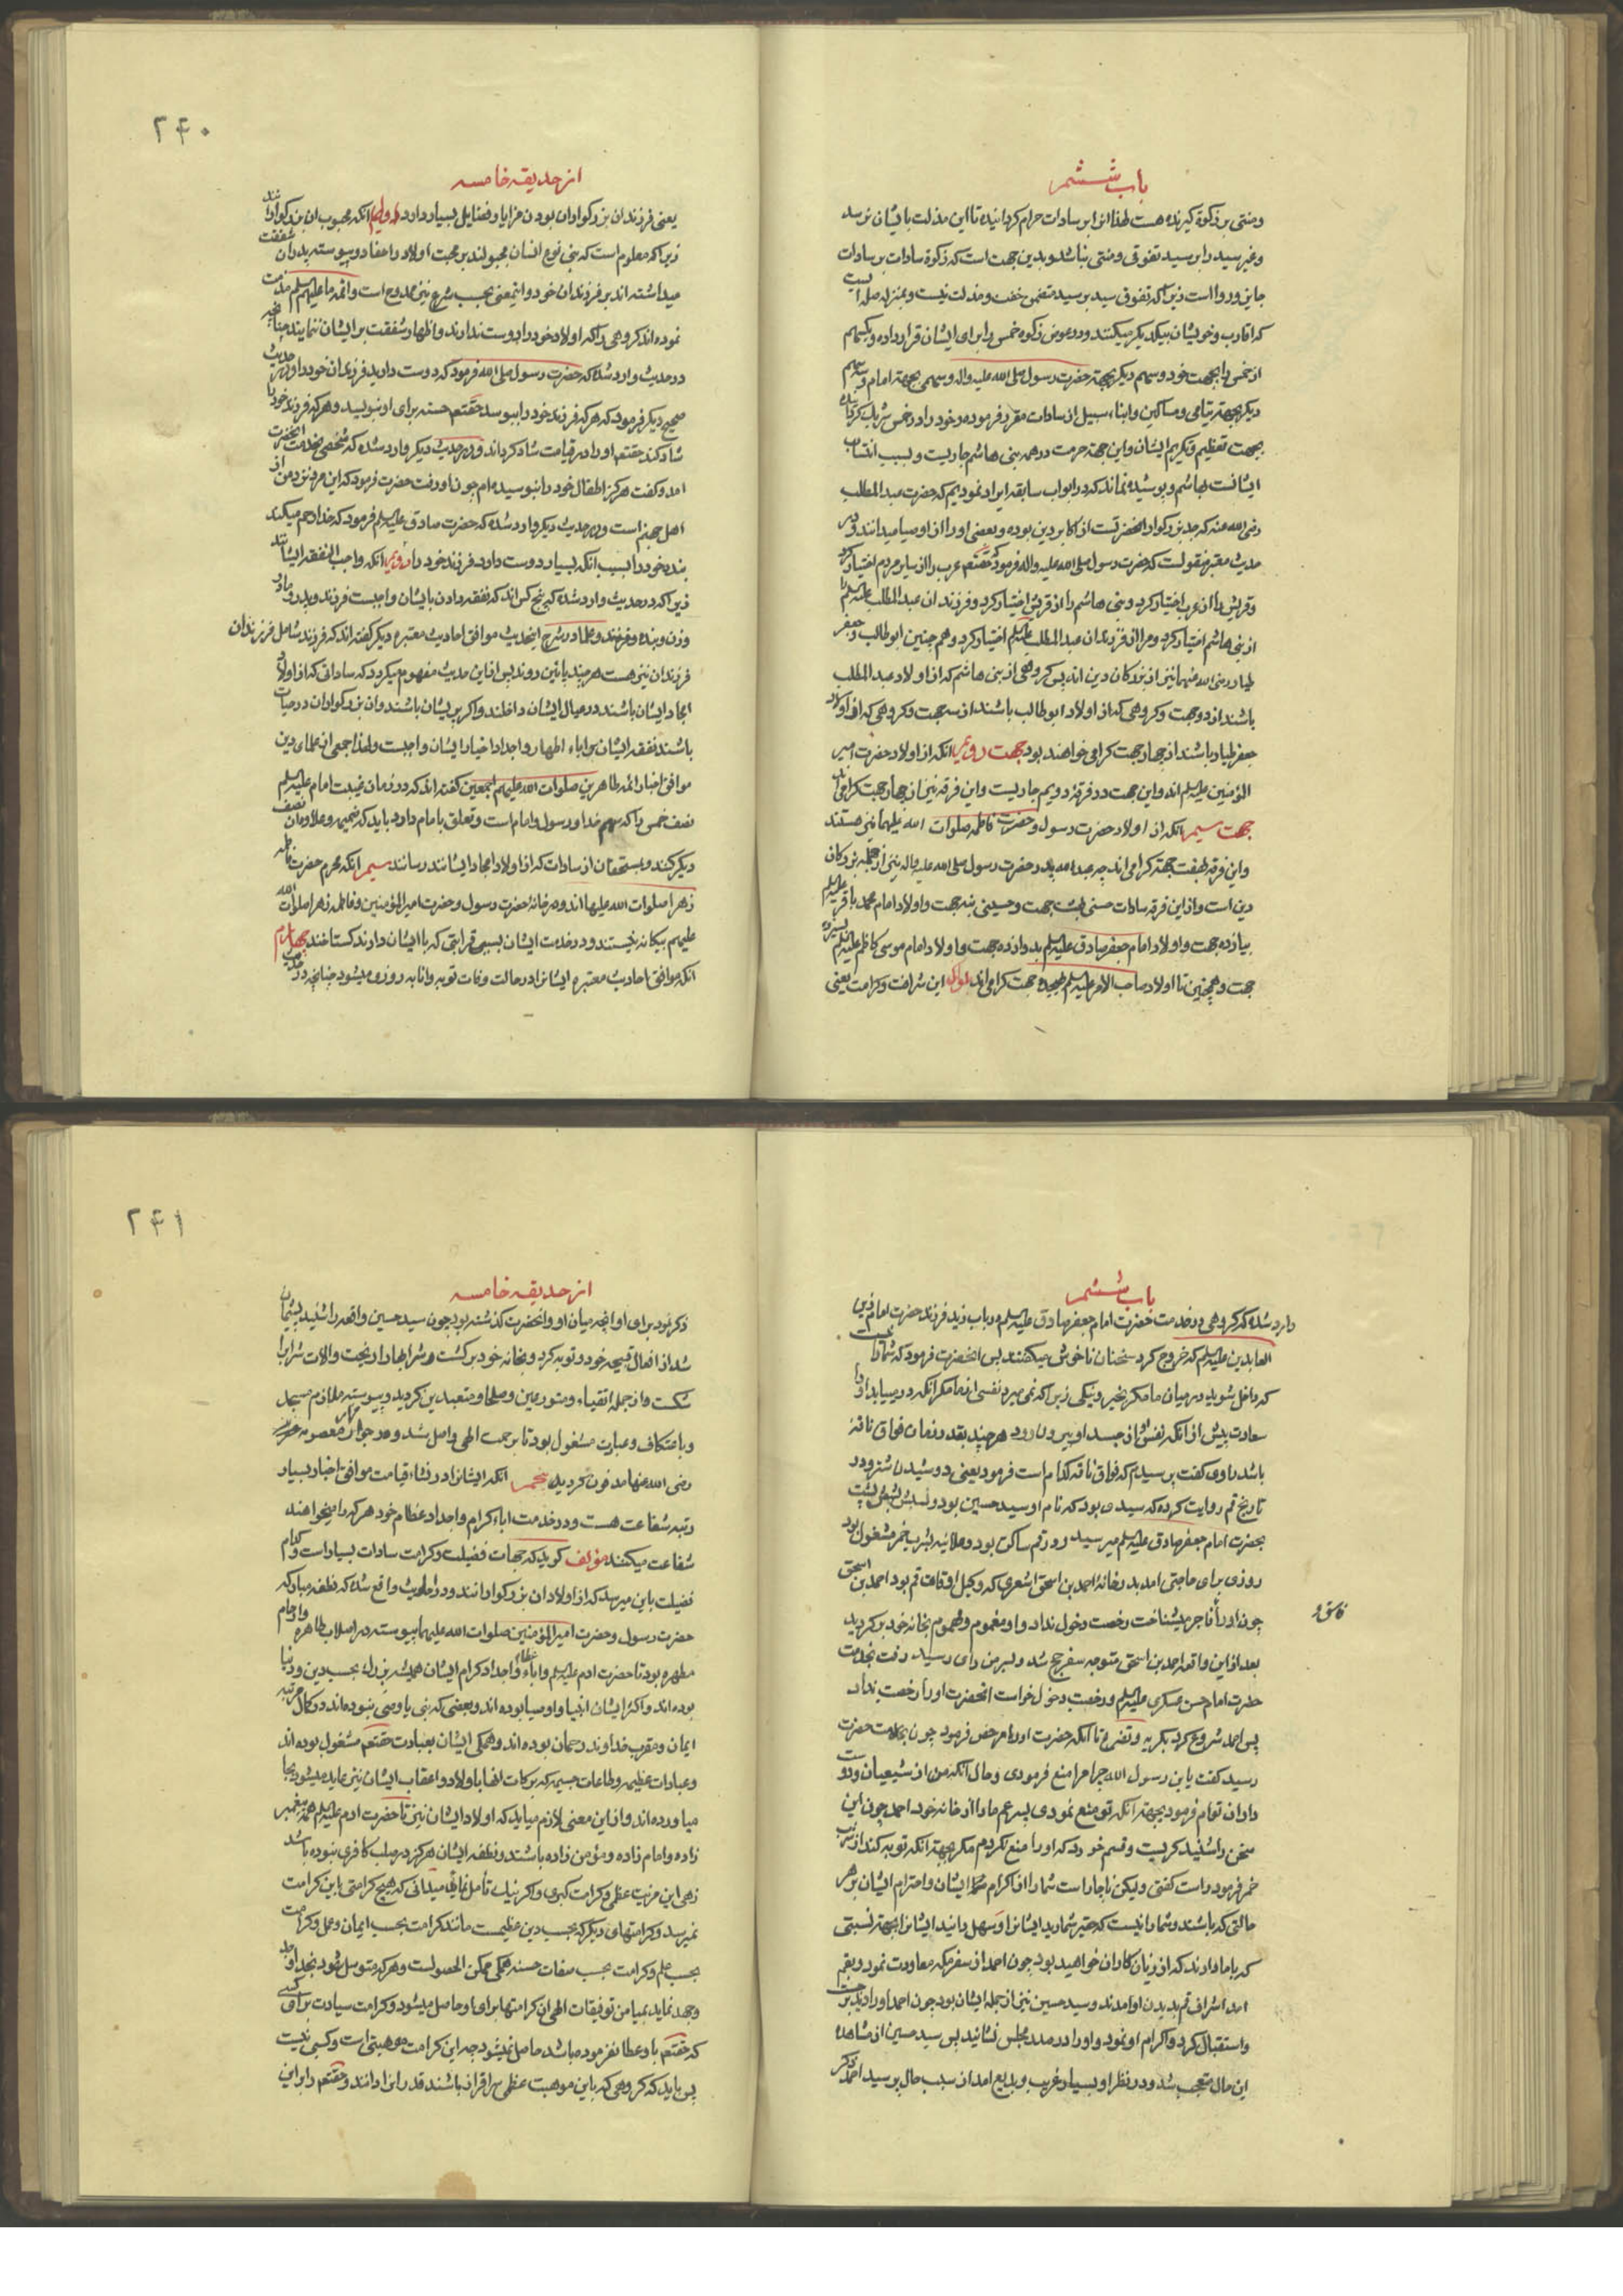 باب ششم
ومنتی بر زکوة گیرنده هست لهذا انرا بر سادات حرام گردانیده تا این مذلت بایشان نرسد
وغیر سید را بر سید تفوقی ومنتی نباشد وبدین جهت است که زکوة سادات بر سادات
جایز و روا است زیرا که تفوق سید بر سید متضمن خفت ومذلت نیست وبمنزله صله ایست
که اقارب وخویشان بیکدیگر میکنند ودر عوض زکوة خمس را برای ایشان قرار داده ویکسهم
از خمس را بجهت خود وسهم دیگر بجهة حضرت رسول صلی الله علیه واله وسهمی بجهة امام وسه سهم
دیگر بجهة یتامی ومساکین وابناء سبیل از سادات مقرر فرموده وخود را در خمس شریک کردانیده
بجهت تعظیم وتکریم ایشان واین جهة حرمت در همه بنی هاشم جاریست وبسبب انتساب
ایشانست بهاشم وپوشیده نماند که در ابواب سابقه ایراد نمودیم که حضرت عبد المطلب
رضی الله عنه که جد بزرگوار انحضرتست از اکابر دین بوده وبعضی او را از اوصیا میدانند ودر
حدیث معتبر منقولست که حضرت رسول صلی الله علیه واله فرمود که حقتعم عرب را از سایر مردم اختیار کرد
وقریش را از عرب اختیار کرد وبنی هاشم را از قریش اختیار کرد وفرزندان عبد المطلب علیه السلم را
از بنی هاشم اختیار کرد ومرا از فرزندان عبد المطلب علیه السلم اختیار کرد وهم چنین ابو طالب وجعفر
طیار رضی الله عنهما نیز از بزرگان دین اند پس گروهی از بنی هاشم که از اولاد عبد المطلب
باشند از دو جهت وگروهی که از اولاد ابو طالب باشند از سه جهت وگروهی که از اولاد
جعفر طیار باشند از چهار جهت گرامی خواهند بود جهت دویم انکه از اولاد حضرت امیر
المؤمنین علیه السلم اند واین جهت در فرقهٔ دویم جاریست واین فرقه نیز از چهار جهت گرامی اند
جهت سیم انکه از اولاد حضرت رسول وحضرت فاطمه صلوات الله علیهما نیز هستند
واین فرقه بهفت جهة گرامی اند چه عبد الله پدر حضرت رسول صلی الله علیه واله نیز از جمله بزرگان
دین است واز این فرقه سادات حسنی بهشت جهت وحسینی بنه جهت واولاد امام محمد باقر علیه السلم
بیازده جهت واولاد امام جعفر صادق علیه السلم بدوازده جهت واولاد امام موسی کاظم علیه السلم بسیزده
جهت وهمچنین تا اولاد صاحب الامر علیه السلم بهیجده جهت گرامی اند این شرافت وکرامت یعنی
۲۴۰
از حدیقه خامسه
یعنی فرزندان بزرگواران بودن مزایا وفضایل بسیار دارد انکه محبوب ان بزرگوارانند
زیرا که معلوم است که بنی نوع انسان مجبولند بر محبت اولاد واحفاد وپیوسته پدران شفقت
میداشته اند بر فرزندان خود واینمعنی بحسب شرع نیز ممدوح است وائمه ما علیهم السلم مذمت
نموده اند گروهی را که اولاد خود را دوست ندارند واظهار شفقت بر ایشان ننمایند چنانچه
در حدیث وارد شده که حضرت رسول صلی الله فرمود که دوست دارید فرزندان خود را ودر حدیث
صحیح دیگر فرمود که هر که فرزند خود را ببوسد حقتعم حسنه برای او بنویسد وهر که فرزند خود را
شاد کند حقتعم او را در قیامت شاد گرداند ودر حدیث دیگر وارد شده که شخصی بخدمت انحضرت
امد وگفت هرگز اطفال خود را نبوسیده ام چون او رفت حضرت فرمود که این مرد نزد من از
اهل جهنم است ودر حدیث دیگر وارد شده که حضرت صادق علیه السلم فرمود که خدا رحم میکند
بنده خود را بسبب انکه بسیار دوست دارد فرزند خود را دویم انکه واجب النفقه ایشانند
زیرا که در حدیث وارد شده که پنج کس اند که نفقه دادن بایشان واجبست فرزند وپدر ومادر
وزن وبنده وفرزند وعلما در شرح انحدیث موافق احادیث معتبره دیگر گفته اند که فرزند شامل فرزندان
فرزندان نیز هست هر چند پائین روند پس از این حدیث مفهوم میگردد که ساداتی که از اولاد
امجاد ایشان باشند در عیال ایشان داخلند واگر پریشان باشند وان بزرگواران در حیات
باشند نفقه ایشان بر اباء اطهار واجداد اخیار ایشان واجبست ولهذا جمعی از علمای دین
موافق اخبار ائمه طاهرین صلوات الله علیهم اجمعین گفته اند که در زمان غیبت امام علیه السلم
نصف خمس را که سهم خدا ورسول وامام است وتعلق بامام دارد باید که ضمیمه وعلاوه ان نصف
دیگر کنند وبمستحقان از سادات که از اولاد امجاد ایشانند رسانند سیم انکه محرم حضرت فاطمه
زهرا صلوات الله علیها اند ودر خانهٔ حضرت رسول وحضرت امیر المؤمنین وفاطمه زهرا صلوات الله
علیهم بیگانه نیستند ودر خدمت ایشان بسبب قرابتی که با ایشان دارند گستاخند چهارم
انکه موافق احادیث معتبره ایشانرا در حالت وفات توبه وانابه روزی میشود چنانچه در حدیث
باب ششم
وارد شده که گروهی در خدمت حضرت امام جعفر صادق علیه السلم در باب زید فرزند حضرت امام زین
العابدین علیه السلم که خروج کرد سخنان ناخوش میگفتند پس انحضرت فرمود که شما را نیست
که داخل شوید در میان ما مگر بخیر ونیکی زیرا که نمی میرد نفسی از ما مگر انکه در مییابد او را
سعادت پیش از انکه نفس از جسد او بیرون رود هر چند بقدر زمان فواق ناقهٔ
باشد راوی گفت پرسیدم که فواق ناقه کدام است فرمود یعنی دوشیدن شتر ودر
تاریخ قم روایت کرده که سیدی بود که نام او سید حسین بود ونسبش بشش پشت
بحضرت امام جعفر صادق علیه السلم میرسید ودر قم ساکن بود وعلانیه بشرب خمر مشغول بود
روزی برای حاجتی امد بدر خانهٔ احمد بن اسحق اشعری که وکیل اوقاف قم بود احمد بن اسحق
چون او را فاجر میشناخت رخصت دخول نداد واو مغموم ومهموم بخانه خود برگردید
بعد از این واقعه احمد بن اسحق متوجه سفر حج شد وبسر من رای رسید رفت بخدمت
حضرت امام حسن عسکری علیه السلم ورخصت دخول خواست انحضرت او را رخصت نداد
پس احمد شروع کرد بگریه وتضرع تا انکه حضرت او را مرخص فرمود چون بخدمت حضرت
رسید گفت یا بن رسول الله چرا مرا منع فرمودی وحال انکه من از شیعیان ودوست
داران توام فرمود بجهة انکه تو منع نمودی پسر عم ما را از خانه خود احمد چون این
سخن را شنید گریست وقسم خورد که او را منع نکردم مگر بجهة انکه توبه کند از شرب
خمر فرمود راست گفتی ولیکن ناچار است شما را از اکرام ایشان واحترام ایشان بر هر
حالتی که باشند وشما را نیست که حقیر شمارید ایشانرا وسهل دانید ایشانرا بجهة نسبتی
که با ما دارند که از زیان کاران خواهید بود چون احمد از سفر مکه معاودت نمود وبقم
امد اشراف قم بدیدن او امدند وسید حسین نیز از جمله ایشان بود چون احمد او را دید برجست
واستقبال کرد واکرام او نمود واو را در صدر مجلس نشانید پس سید حسین از مشاهده
این حال متعجب شد ودر نظر او بسیار غریب وبدیع امد از سبب حال پرسید احمد ذکر
۲۴۱
از حدیقه خامسه
ذکر نمود برای او انچه میان او وانحضرت گذشته بود چون سید حسین واقعه را شنید پشیمان
شد از افعال قبیحه خود وتوبه کرد وبخانه خود برگشت وشرابها را ریخت والات شراب را
شکست واز جمله اتقیاء ومتورعین وصلحا ومتعبدین گردید وپیوسته ملازم مسجد
وباعتکاف وعبادت مشغول بود تا برحمت الهی واصل شد ودر جوار مزار معصومه
رضی الله عنها مدفون گردید پنجم انکه ایشانرا در نشاء قیامت موافق اخبار بسیار
رتبه شفاعت هست ودر خدمت اباء کرام واجداد عظام خود هر که را میخواهند
شفاعت میکنند مؤلف گوید که جهات فضیلت وکرامت سادات بسیار است وکدام
فضیلت باین میرسد که از اولاد ان بزرگوارانند ودر احادیث واقع شده که نطفه مبارکه
حضرت رسول وحضرت امیر المؤمنین صلوات الله علیهما پیوسته در اصلاب طاهره وارحام
مطهره بود تا حضرت ادم علیه السلم واباء عظام واجداد کرام ایشان همیشه بزرگ بحسب دین ودنیا
بوده اند واکثر ایشان انبیا واوصیا بوده اند وبعضی که نبی یا وصی نبوده اند در کمال مرتبه
ایمان ومقرب خداوند رحمان بوده اند وهمگی ایشان بعبادت حقتعم مشغول بوده اند
وعبادات عظیمه وطاعات جسیمه که برکات انها باولاد واعقاب ایشان نیز عاید میشود بجا
میاورده اند واز این معنی لازم میاید که اولاد ایشان نیز تا حضرت ادم علیه السلم همه پیغمبر
زاده وامام زاده ومؤمن زاده باشند ونطفه ایشان هرگز در صلب کافری نبوده باشد
زهی این مزیت عظمی وکرامت کبری واگر نیک تأمل نمائی میدانی که هیچ کرامتی باین کرامت
نمیرسد وکرامتهای دیگر که بحسب دین عظیمست مانند کرامت بحسب ایمان وعمل وکرامت
بحسب علم وکرامت بحسب صفات حسنه همگی ممکن الحصولست وهر که متوسل شود بخدا وجد
وجهد نماید بمیامن توفیقات الهی ان کرامتها برای او حاصل میشود وکرامت سیادت برای کسی
که حقتعم باو عطا نفرموده باشد حاصل نمیشود چه این کرامت موهبتی است وکسبی نیست
پس باید که گروهی که باین موهبت عظمی سرافراز باشند قدر انرا دانند وحقتعم را بر این